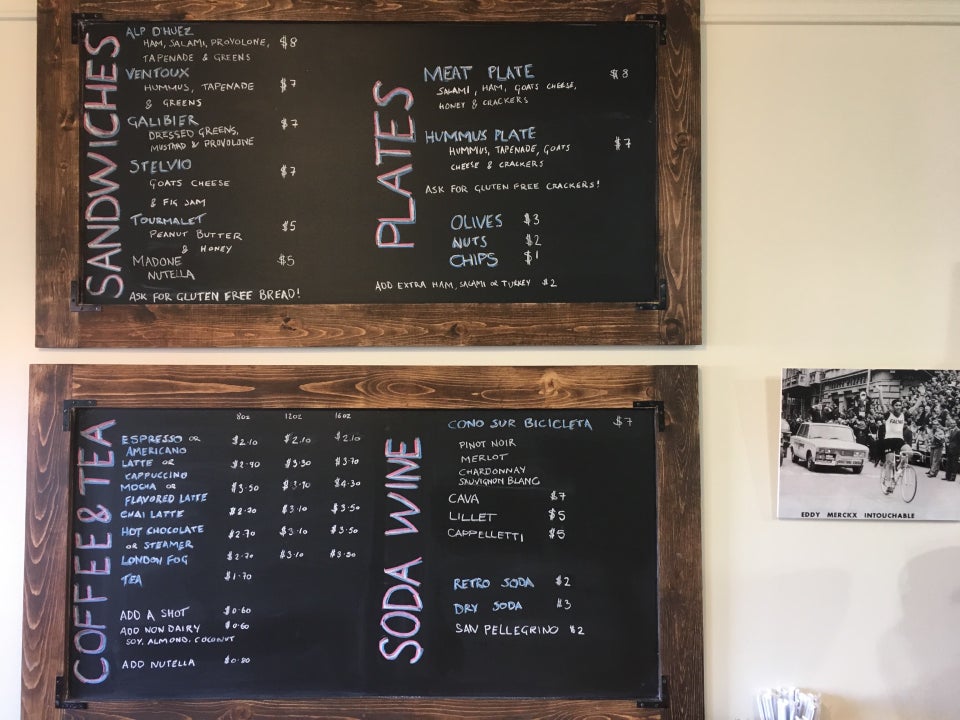 SANDWICHES
ALP D'HUEZ
HAM, SALAMI, PROVOLONE, $8
TAPENADE & GREENS
VENTOUX
HUMMUS, TAPENADE $7
& GREENS
GALIBIER $7
DRESSED GREENS,
MUSTARD & PROVOLONE
STELVIO $7
GOATS CHEESE
& FIG JAM
TOURMALET $5
PEANUT BUTTER
& HONEY
MADONE $5
NUTELLA
ASK FOR GLUTEN FREE BREAD!
PLATES
MEAT PLATE $8
SALAMI, HAM, GOATS CHEESE,
HONEY & CRACKERS
HUMMUS PLATE $7
HUMMUS, TAPENADE, GOATS
CHEESE & CRACKERS
ASK FOR GLUTEN FREE CRACKERS!
OLIVES $3
NUTS $2
CHIPS $1
ADD EXTRA HAM, SALAMI OR TURKEY $2
COFFEE & TEA
8OZ 12OZ 16OZ
ESPRESSO OR $2.10 $2.10 $2.10
AMERICANO
LATTE OR $2.90 $3.30 $3.70
CAPPUCCINO
MOCHA OR $3.50 $3.90 $4.30
FLAVORED LATTE
CHAI LATTE $2.70 $3.10 $3.50
HOT CHOCOLATE $2.70 $3.10 $3.50
OR STEAMER
LONDON FOG $2.70 $3.10 $3.50
TEA $1.70
ADD A SHOT $0.60
ADD NON DAIRY $0.60
SOY, ALMOND, COCONUT
ADD NUTELLA $0.80
SODA WINE
CONO SUR BICICLETA $7
PINOT NOIR
MERLOT
CHARDONNAY
SAUVIGNON BLANC
CAVA $7
LILLET $5
CAPPELLETTI $5
RETRO SODA $2
DRY SODA $3
SAN PELLEGRINO $2
EDDY MERCKX INTOUCHABLE